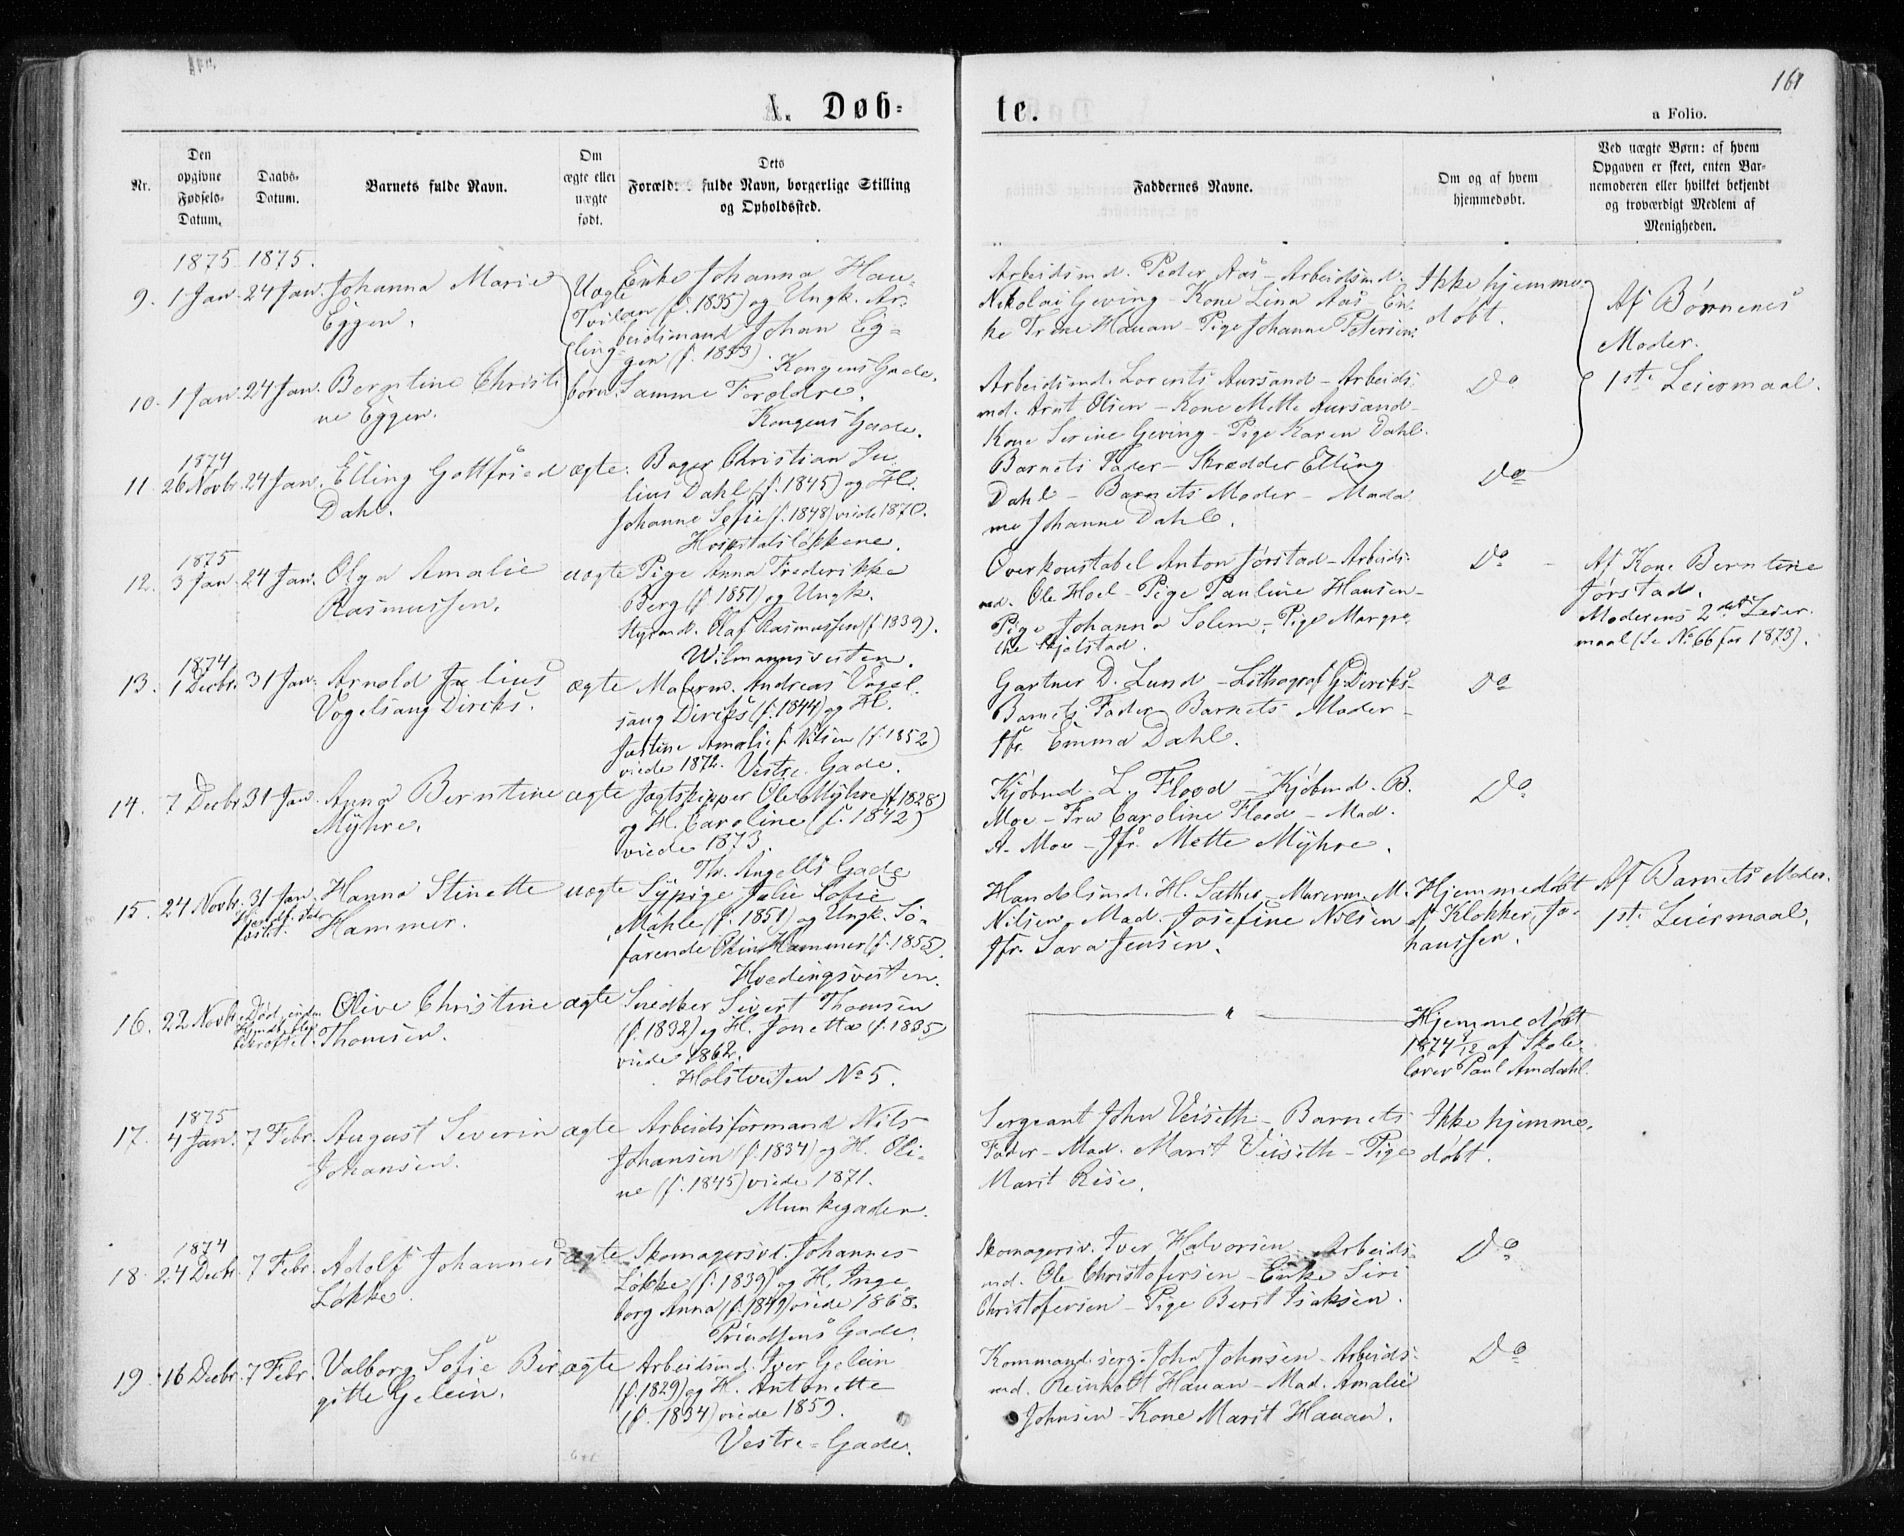 161
A. Døb-
te.
a Folio.
Nr.
Den
opgivne
Fødsels-
Datum.
Daabs-
Datum.
Barnets fulde Navn.
Om
ægte eller
uægte
født.
Dets
Forældres fulde Navn, borgerlige Stilling
og Opholdssted.
Faddernes Navne.
Om og af hvem
hjemmedøbt.
Ved uægte Børn: af hvem
Opgaven er skeet, enten Bar-
nemoderen eller hvilket bekjendt
og troværdigt Medlem af
Menigheden.
1875 1875.
9. 1 Jan. 24 Jan. Johanna Marie
Eggen.
Uægte
Tvil-
ling-
børn.
Enke Johanna Hau-
an (f. 1835) og Ungk. Ar-
beidsmand Johan Eg-
gen (f. 1833).
Kongens Gade.
Arbeidsmd. Peder Aas - Arbeidsmd.
Nikolai Geving - Kone Lina Aas - En-
ke Trine Hauan - Pige Johanne Petersen.
Ikke hjemme-
døbt.
Af Børnenes
Moder.
1ste Leiermaal.
10. 1 Jan. 24 Jan. Berntine Christi
ne Eggen.
Samme Forældre.
Kongens Gade.
Arbeidsmd. Lorents Aursand - Arbeids-
md. Arnt Olsen - Kone Mette Aursand -
Kone Serine Geving - Pige Karen Dahl.
Do
1874
11. 26 Novbr. 24 Jan. Elling Gottfried
Dahl.
ægte.
Bager Christian Ju
lius Dahl (f. 1845) og H.
Johanne Sofie (f. 1848) viede 1870.
Hospitalsløkkene.
Barnets Fader - Skrædder Elling
Dahl - Barnets Moder - Mada
me Johanne Dahl.
Do
1875
12. 3 Jan. 24 Jan. Olga Amalie
Rasmussen.
uægte
Pige Anna Frederikke
Berg (f. 1851) og Ungk.
Styrmd. Olaf Rasmussen (f. 1839).
Wilmannsveiten.
Overkonstabel Anton Jørstad - Arbeids-
md. Ole Hoel - Pige Pauline Hansen -
Pige Johanna Solem - Pige Margre
the Hjolstad.
Do
Af Kone Berntine
Jørstad.
Moderens 2det Leier-
maal (Se No 66 for 1873).
1874
13. 1 Decbr. 31 Jan. Arnold Julius
Vogelsang Dircks.
ægte
Malerm. Andreas Vogel-
sang Dircks (f. 1844) og H.
Justine Amalie f. Nilsen (f. 1852)
viede 1872. Vestre Gade.
Gartner D. Lund - Lithograf G. Dircks -
Barnets Fader - Barnets Moder -
Jfr. Emma Dahl.
Do
14. 7 Decbr. 31 Jan. Anna Berntine
Myhre.
ægte
Jagtskipper Ole Myhre (f. 1828)
og H. Caroline (f. 1842)
viede 1873.
Th. Angells Gade
Kjøbmd. L. Flood - Kjøbmd. B.
Moe - Fru Caroline Flood - Mad.
A. Moe - Jfr. Mette Myhre.
Do
15. 24 Novbr. 31 Jan.
Hanna Stinette
Hammer.
uægte
Sypige Julie Sofie
Mæhle (f. 1851) og Ungk. Sø-
farende Odin Hammer (f. 1855).
Hvedingsveiten.
Handelsmd. H. Sather - Murerm. M.
Nilsen - Mad. Josefine Nilsen
Jfr. Sara Jensen.
Hjemmedøbt
af Klokker Jo-
hanssen.
Af Barnets Moder.
1ste Leiermaal.
16. 22 Novbr. Død, inden
Hjmdb. blev
bekræftet.
Olive Christine
Thomsen.
ægte
Snedker Sivert Thomsen
(f. 1832) og H. Jonetta (f. 1835)
viede 1862.
Holstveiten No 5.
"
Hjemmedøbt
1874 1/12 af Skole-
lærer Paul Amdahl.
1875
17. 4 Jan. 7 Febr. August Severin
Johansen.
ægte
Arbeidsformand Nils
Johansen (f. 1834) og H. Oli-
ne (f. 1845) viede 1871.
Munkegaden.
Sergeant John Veiseth - Barnets
Fader - Mad. Marit Veiseth - Pige
Marit Rise.
Ikke hjemme-
døbt.
1874
18. 24 Decbr. 7 Febr. Adolf Johannes
Løkke.
ægte
Skomagersvd. Johannes
Løkke (f. 1839) og H. Inge
borg Anna (f. 1849) viede 1868.
Prindsens Gade.
Skomagersv. Iver Halvorsen - Arbeids-
md. Ole Christofersen - Enke Siri
Christofersen - Pige Berit Isaksen.
Do
19. 16 Decbr. 7 Febr. Valborg Sofie Bir
gitte Gelein.
ægte
Arbeidsmd. Iver Gelein
(f. 1829) og H. Antonette
(f. 1834) viede 1859.
Vestre-Gade.
Kommand.serg. John Johnsen - Arbeids-
md. Reinholt Hauan - Mad. Amalie
Johnsen - Kone Marit Hauan.
Do